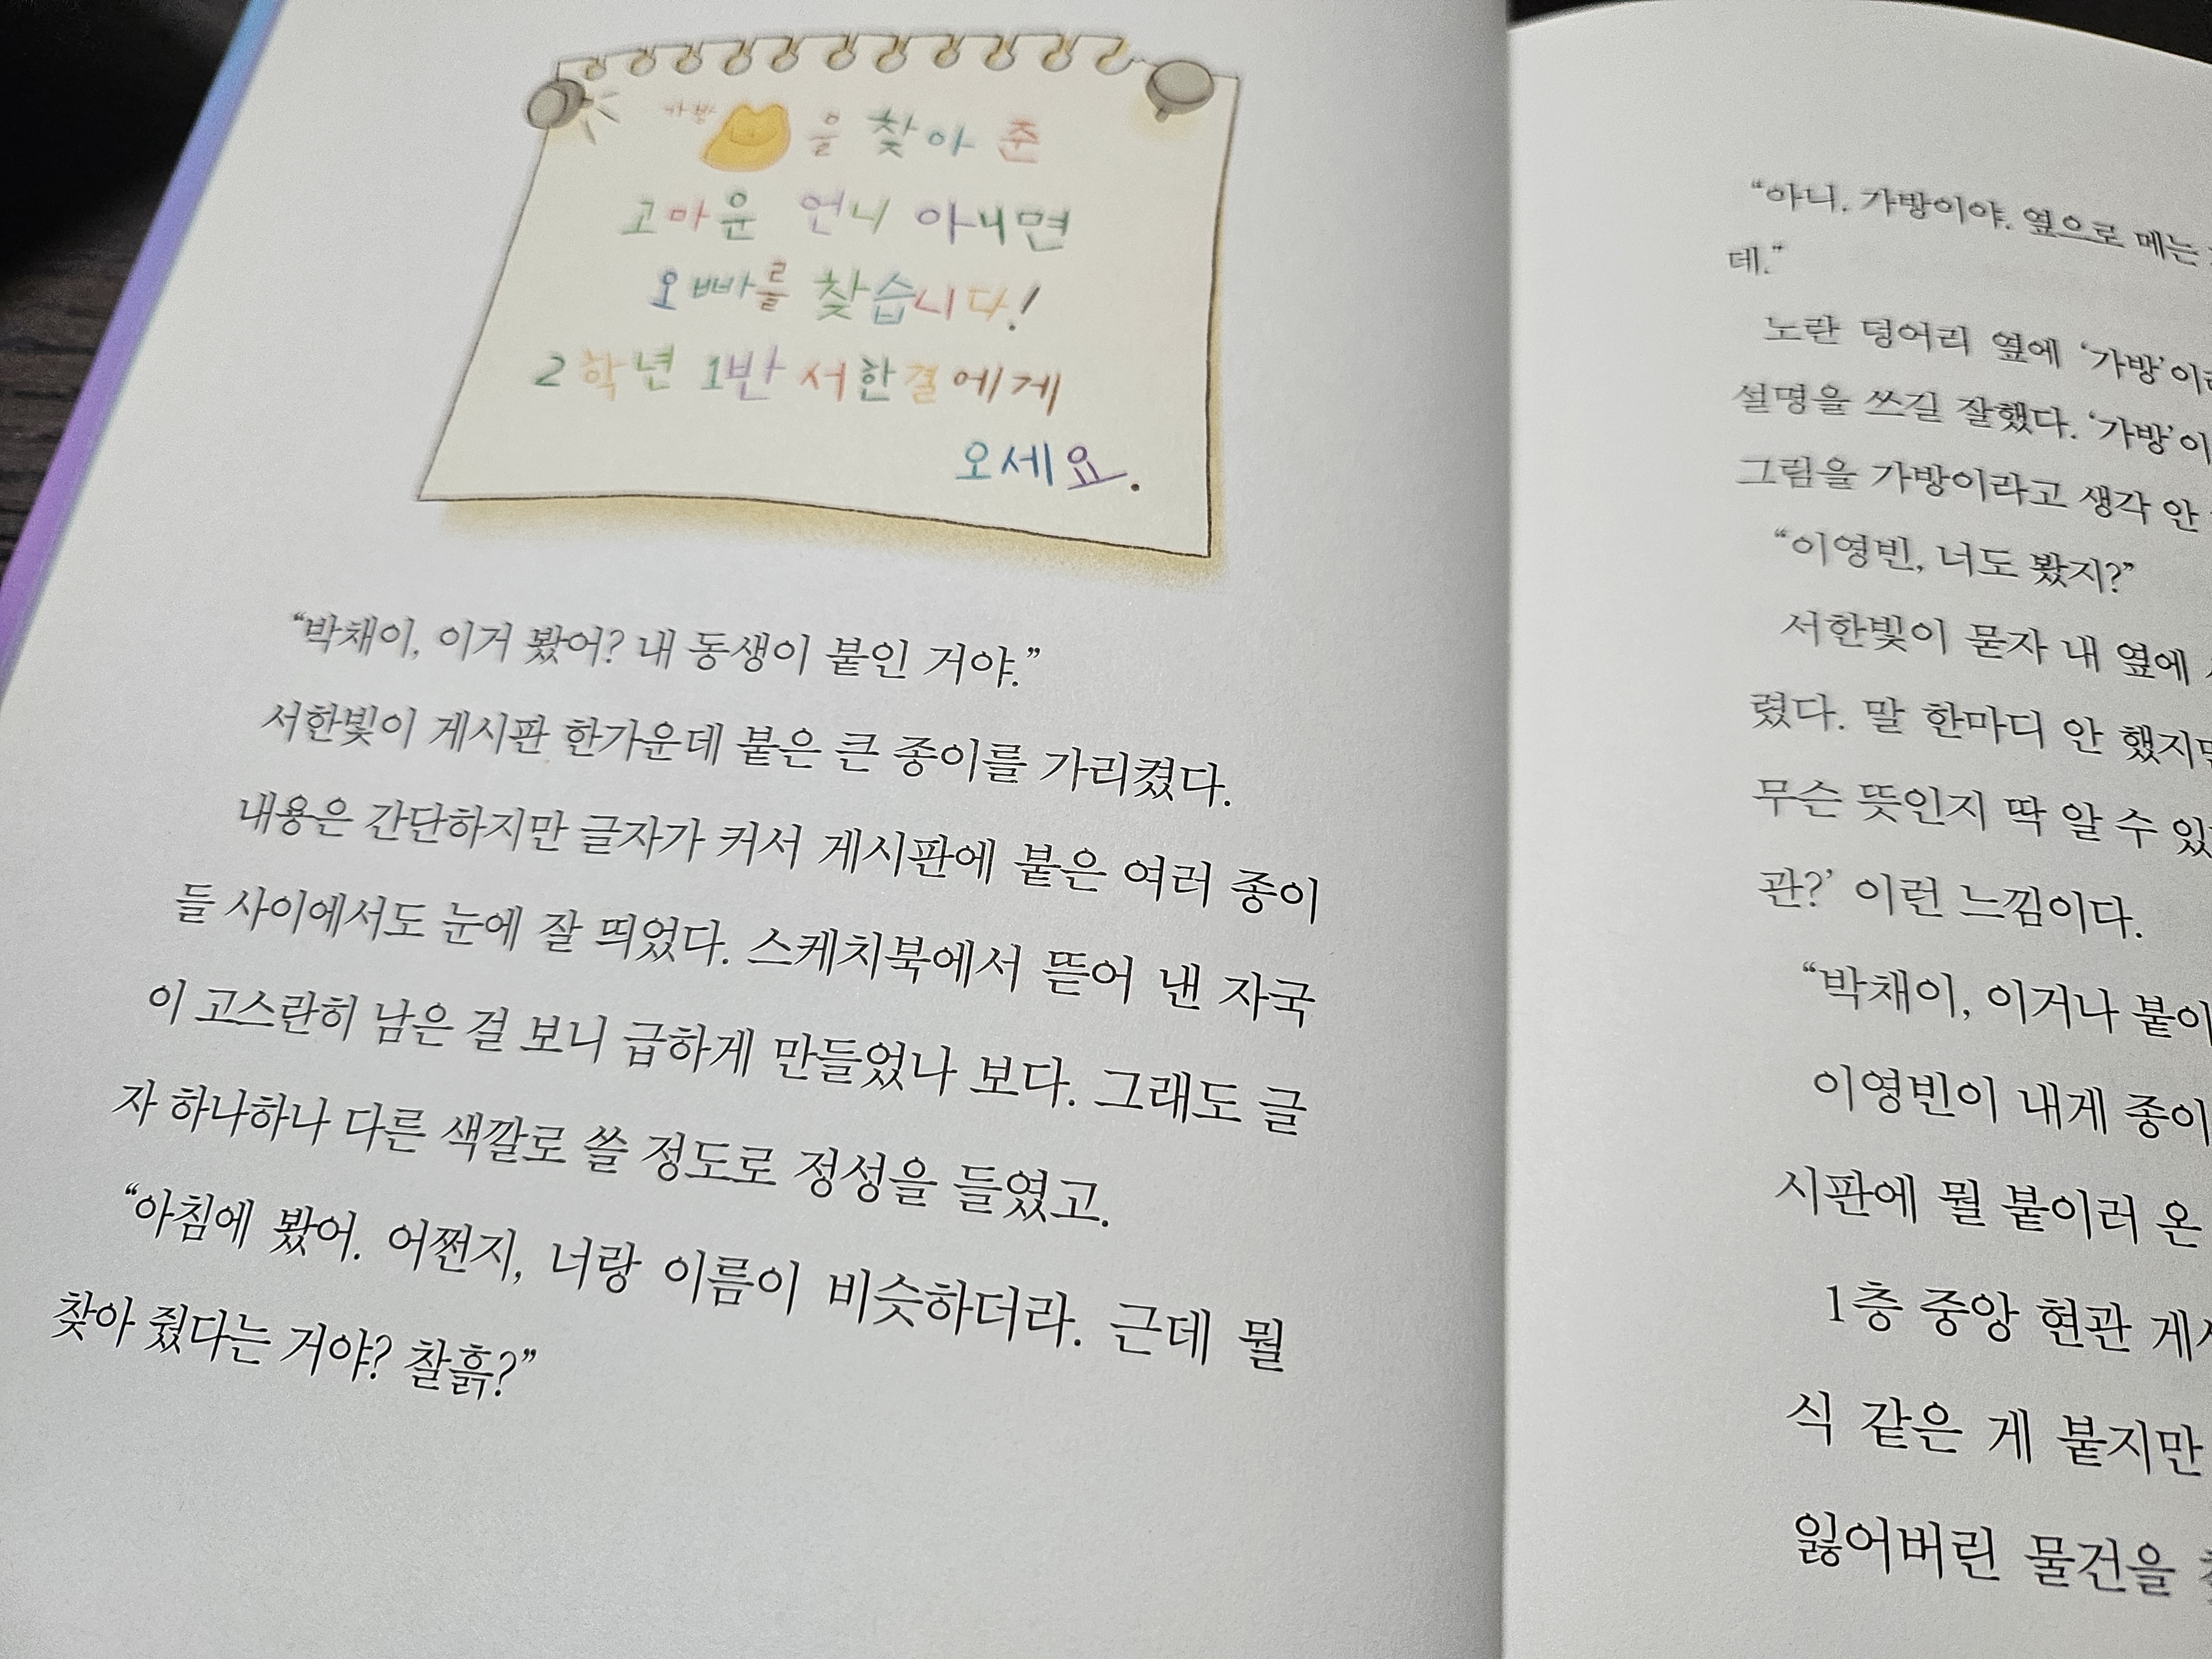 가방 을 찾아 준
고마운 언니 아니면
오빠를 찾습니다!
2학년 1반 서한결에게
오세요.
“박채이, 이거 봤어? 내 동생이 붙인 거야.”
서한빛이 게시판 한가운데 붙은 큰 종이를 가리켰다.
내용은 간단하지만 글자가 커서 게시판에 붙은 여러 종이
들 사이에서도 눈에 잘 띄었다. 스케치북에서 뜯어 낸 자국
이 고스란히 남은 걸 보니 급하게 만들었나 보다. 그래도 글
자 하나하나 다른 색깔로 쓸 정도로 정성을 들였고.
“아침에 봤어. 어쩐지, 너랑 이름이 비슷하더라. 근데 뭘
찾아 줬다는 거야? 찰흙?”
“아니. 가방이야. 옆으로 메는
데.”
노란 덩어리 옆에 ‘가방’이
설명을 쓰길 잘했다. ‘가방’이
그림을 가방이라고 생각 안
“이영빈, 너도 봤지?”
서한빛이 묻자 내 옆에
렸다. 말 한마디 안 했지만
무슨 뜻인지 딱 알 수
관?’ 이런 느낌이다.
“박채이, 이거나 붙이
이영빈이 내게 종이
시판에 뭘 붙이러 온
1층 중앙 현관 게
식 같은 게 붙지만
잃어버린 물건을